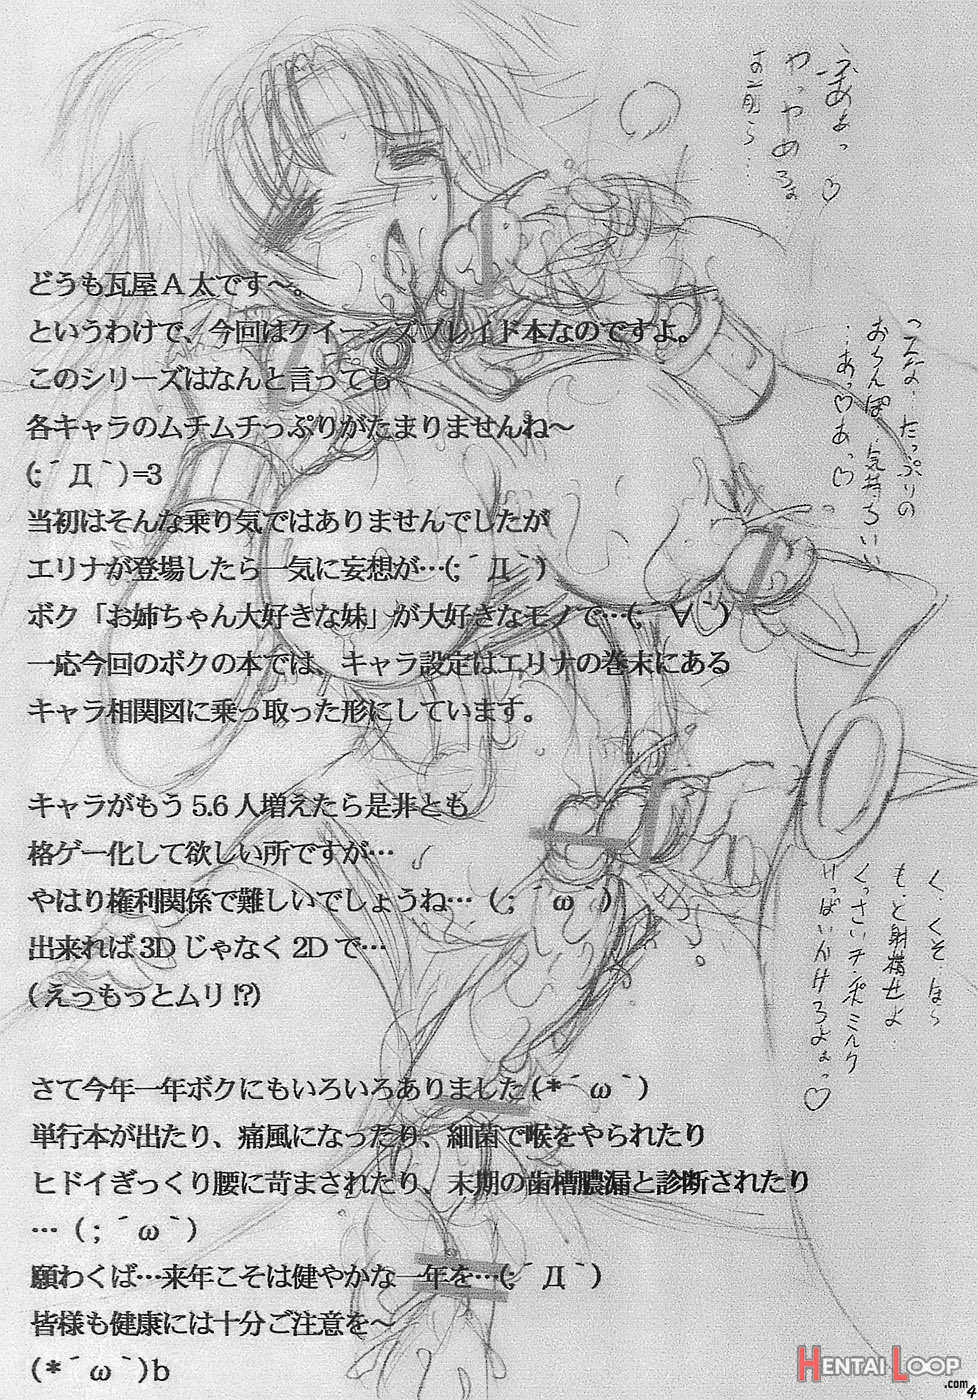 どうも瓦屋A太です〜。
というわけで、今回はクイーンズブレイド本なのですよ。
このシリーズはなんと言っても
各キャラのムチムチっぷりがたまりませんね〜
(;´Д｀)=3
当初はそんな乗り気ではありませんでしたが
エリナが登場したら一気に妄想が…(;´Д｀)
ボク「お姉ちゃん大好きな妹」が大好きなモノで…(;´∀｀)
一応今回のボクの本では、キャラ設定はエリナの巻末にある
キャラ相関図に乗っ取った形にしています。
キャラがもう5.6人増えたら是非とも
格ゲー化して欲しい所ですが…
やはり権利関係で難しいでしょうね…(;´ω｀)
出来れば3Dじゃなく2Dで…
(えっもっとムリ!?)
さて今年一年ボクにもいろいろありました(*´ω｀)
単行本が出たり、痛風になったり、細菌で喉をやられたり
ヒドイぎっくり腰に苛まされたり、末期の歯槽膿漏と診断されたり
…(;´ω｀)
願わくば…来年こそは健やかな一年を…(;´Д｀)
皆様も健康には十分ご注意を〜
(*´ω｀)b
ふぁぁっ♡
やっやめろぉ
こんな、たっぷりの
おちんぽ、気持ちいい
…あっ♡あっ♡
く、くそ、ほら
もっと射精せよ
くっさいチンポミルク
いっぱいかけろよぉっ♡
HENTAI LOOP
.com
4